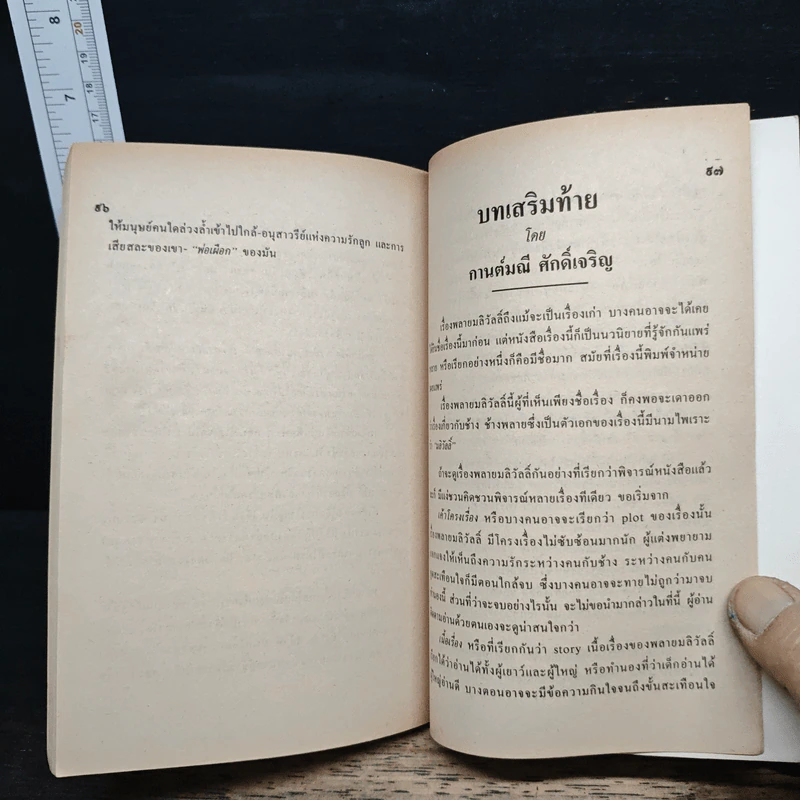 8
20
19
18
7
17
๕๖
ให้มนุษย์คนใดล่วงล้ำเข้าไปใกล้-อนุสาวรีย์แห่งความรักลูก และการ
เสียสละของเขา- “พ่อเผือก” ของมัน
๕๗
บทเสริมท้าย
โดย
กานต์มณี ศักดิ์เจริญ
เรื่องพลายมลิวัลลิ์ถึงแม้จะเป็นเรื่องเก่า บางคนอาจจะได้เคย
ชื่อเรื่องนี้มาก่อน แต่หนังสือเรื่องนี้ก็เป็นนวนิยายที่รู้จักกันแพร่
หรือเรียกอย่างหนึ่งก็คือมีชื่อมาก สมัยที่เรื่องนี้พิมพ์จำหน่าย
เรื่องพลายมลิวัลลิ์นี้ผู้ที่เห็นเพียงชื่อเรื่อง ก็คงพอจะเดาออก
เกี่ยวกับช้าง ช้างพลายซึ่งเป็นตัวเอกของเรื่องนี้มีนามไพเราะ
“มลิวัลลิ์”
ถ้าจะดูเรื่องพลายมลิวัลลิ์กันอย่างที่เรียกว่าพิจารณ์หนังสือแล้ว
มีแง่ชวนคิดชวนพิจารณ์หลายเรื่องทีเดียว ขอเริ่มจาก
เค้าโครงเรื่อง หรือบางคนอาจจะเรียกว่า plot ของเรื่องนั้น
พลายมลิวัลลิ์ มีโครงเรื่องไม่ซับซ้อนมากนัก ผู้แต่งพยายาม
ให้เห็นถึงความรักระหว่างคนกับช้าง ระหว่างคนกับคน
สะเทือนใจก็มีตอนใกล้จบ ซึ่งบางคนอาจจะทายไม่ถูกว่ามาจบ
ส่วนที่ว่าจะจบอย่างไรนั้น จะไม่ขอนำมากล่าวในที่นี้ ผู้อ่าน
อ่านด้วยตนเองจะดูน่าสนใจกว่า
เนื้อเรื่อง หรือที่เรียกกันว่า story เนื้อเรื่องของพลายมลิวัลลิ์
ได้ว่าอ่านได้ทั้งผู้เยาว์และผู้ใหญ่ หรือทำนองที่ว่าเด็กอ่านได้
อ่านดี บางตอนอาจจะมีข้อความกินใจจนถึงขั้นสะเทือนใจ